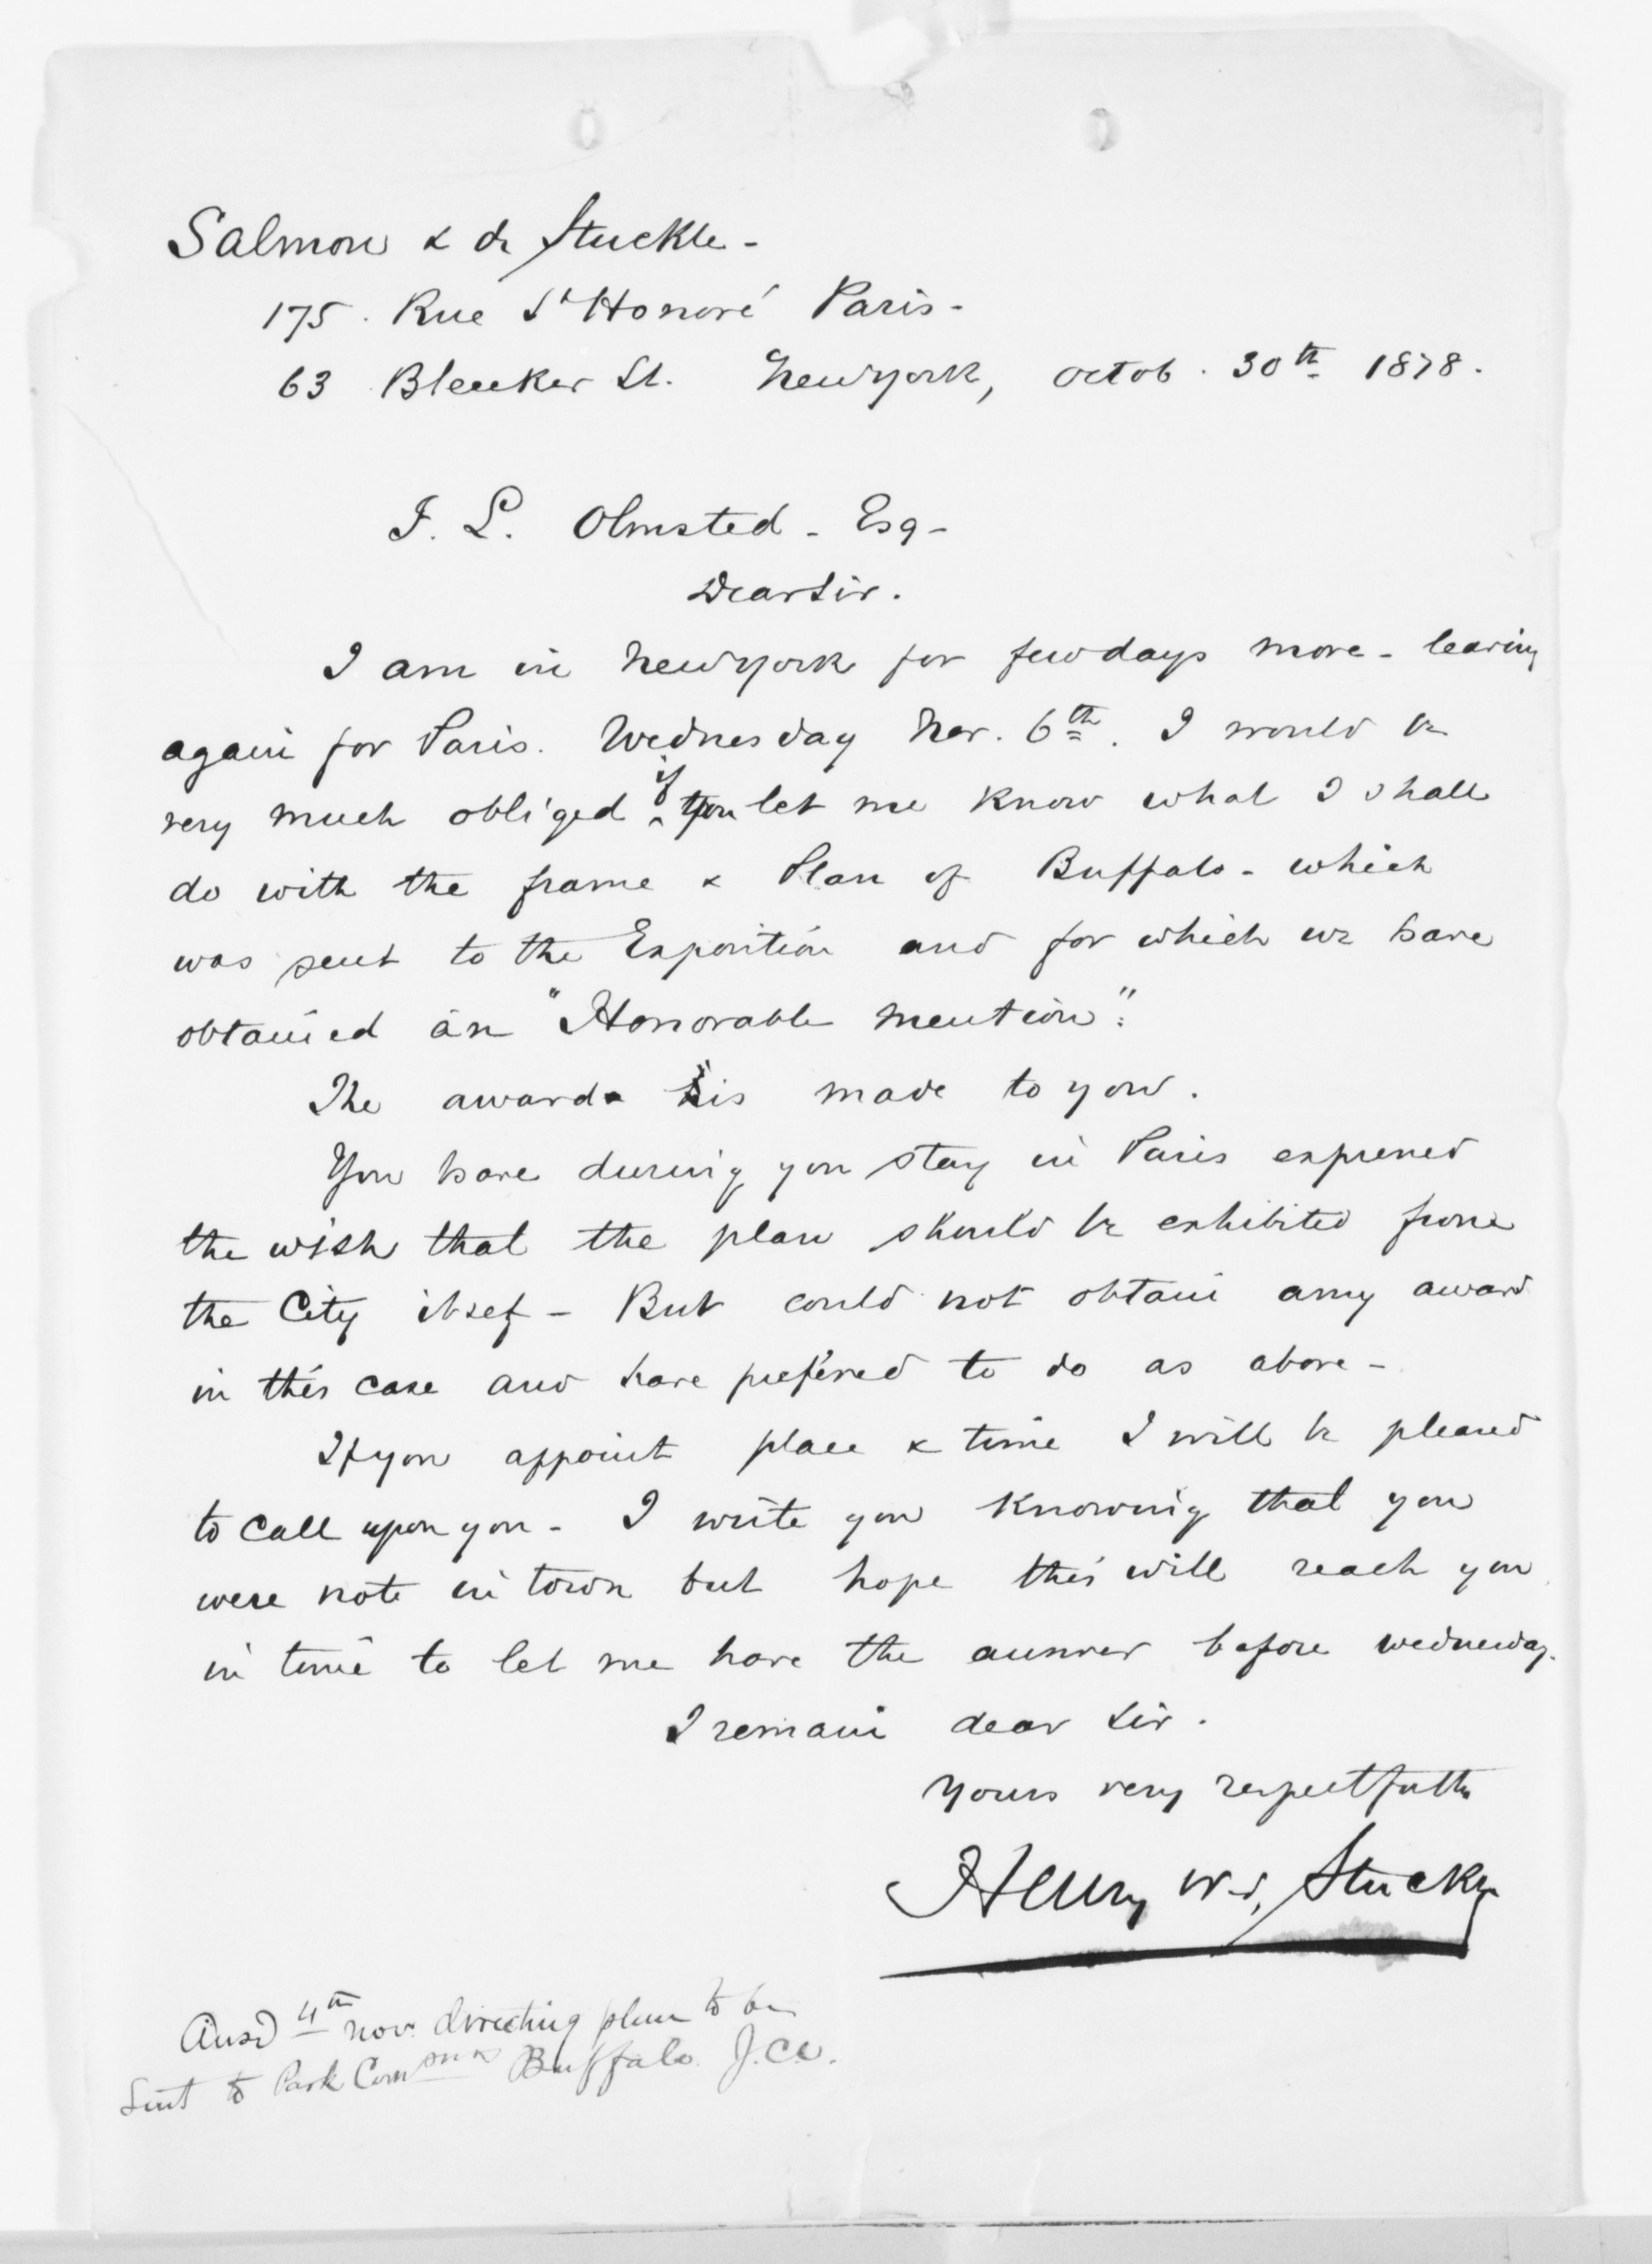 Salmon & de Stuckle -
175. Rue St Honoré Paris -
63 Bleeker St. Newyork, octob. 30th 1878.
F. L. Olmsted - Esq -
Dear Sir.
I am in Newyork for few days more - leaving
again for Paris. Wednesday Nov. 6th. I would be
very much obliged if you let me know what I shall
do with the frame & Plan of Buffalo - which
was sent to the Exposition and for which we have
obtained an "Honorable mention".
The award is made to you.
You have during you stay in Paris expressed
the wish that the plan should be exhibited from
the City itsef - But could not obtain any award
in this case and have prefered to do as above -
If you appoint place & time I will be pleased
to call upon you - I write you knowing that you
were note in town but hope this will reach you
in time to let me have the answer before wednesday.
I remain dear Sir.
Yours very respectfully
Henry W. d. Stucky
Ansd 4th Nov. directing plan to be
sent to Park Commrs Buffalo J.C.O.